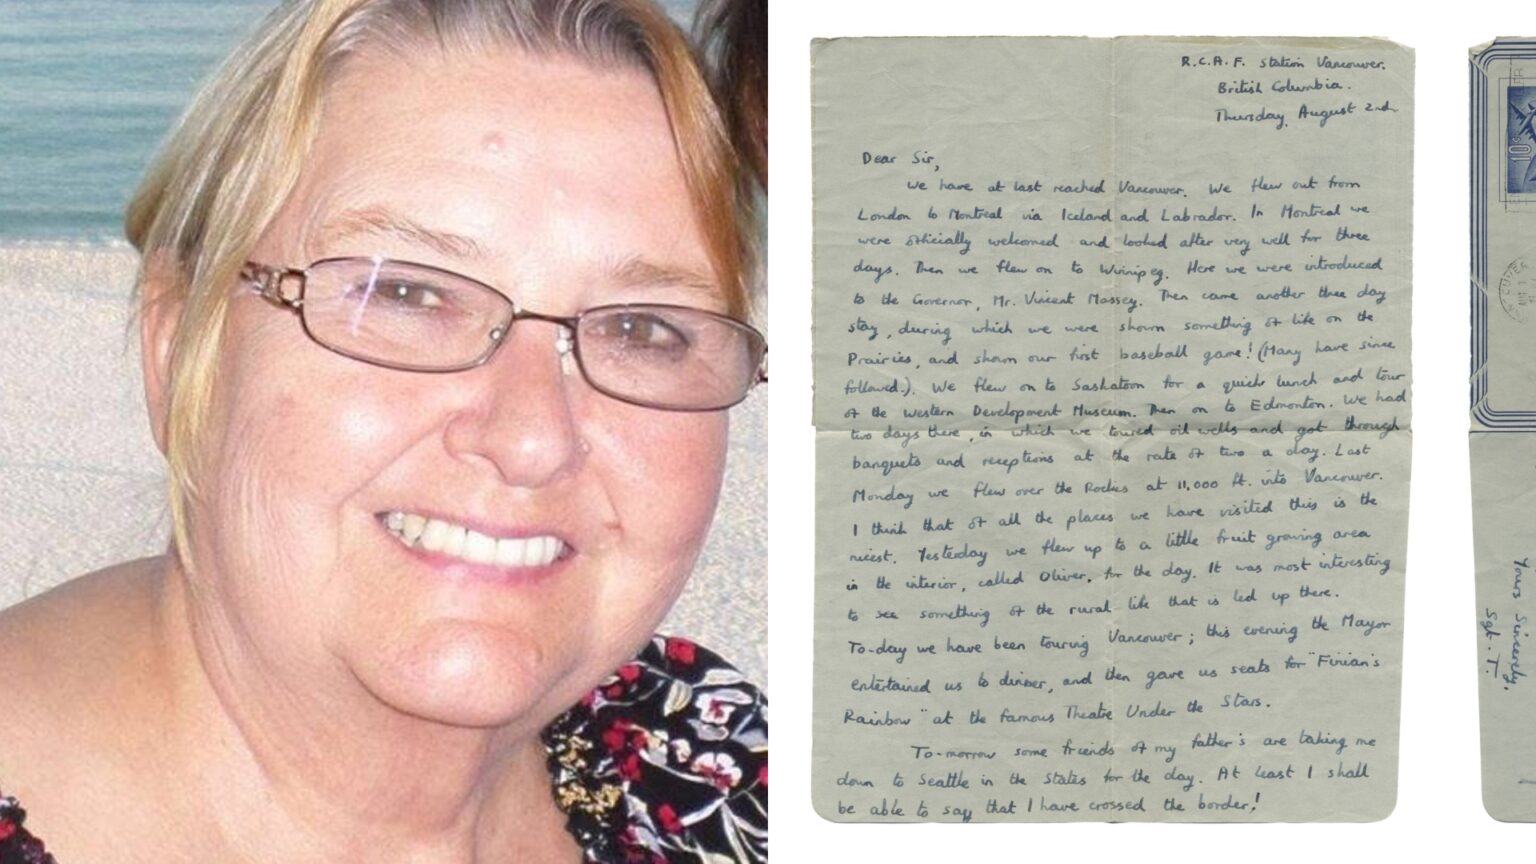 R.C.A.F. Station Vancouver.
British Columbia.
Thursday, August 2nd
Dear Sir,
We have at last reached Vancouver. We flew out from
London to Montreal via Iceland and Labrador. In Montreal we
were officially welcomed and looked after very well for three
days. Then we flew on to Winnipeg. Here we were introduced
to the Governor, Mr. Vincent Massey. Then came another three day
stay, during which we were shown something of life on the
Prairies, and shown our first baseball game! (Many have since
followed.). We flew on to Saskatoon for a quick lunch and tour
of the Western Development Museum. Then on to Edmonton. We had
two days there, in which we toured oil wells and got through
banquets and receptions at the rate of two a day. Last
Monday we flew over the Rockies at 11,000 ft. into Vancouver.
I think that of all the places we have visited this is the
nicest. Yesterday we flew up to a little fruit growing area
in the interior, called Oliver, for the day. It was most interesting
to see something of the rural life that is led up there.
To-day we have been touring Vancouver; this evening the Mayor
entertained us to dinner, and then gave us seats for "Finian's
Rainbow" at the famous Theatre Under the Stars.
To-morrow some friends of my father's are taking me
down to Seattle in the States for the day. At least I shall
be able to say that I have crossed the border!
10
Yours Sincerely,
Sgt. T.